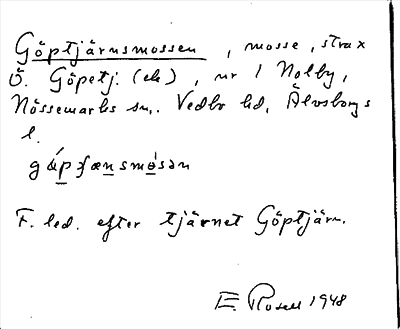 Göptjärnsmossen, mosse, strax
Ö. Göpetj. (ek), nr 1 Nolby,
Nössemarks sn,. Vedbo hd, Älvsborgs
l.
F. led. efter tjärnet Göptjärn.
E. Rosell 1948